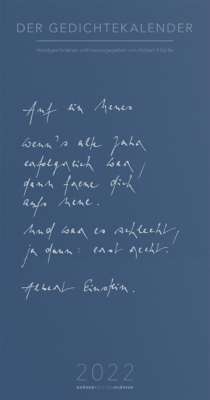 DER GEDICHTEKALENDER
Auf ein Neues
Wenn's alte Jahr
erfolgreich war,
dann freue dich
aufs neue.
Und war es schlecht,
ja dann: erst recht.
Albert Einstein.
2022